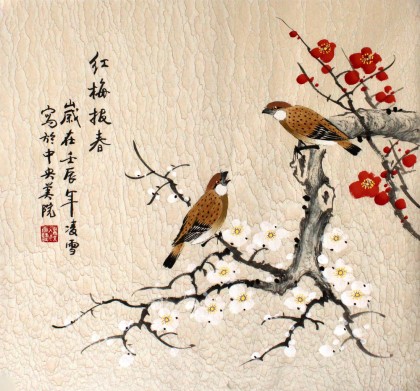 红梅报春
嵗在壬辰年凌雪
寫於中央美院